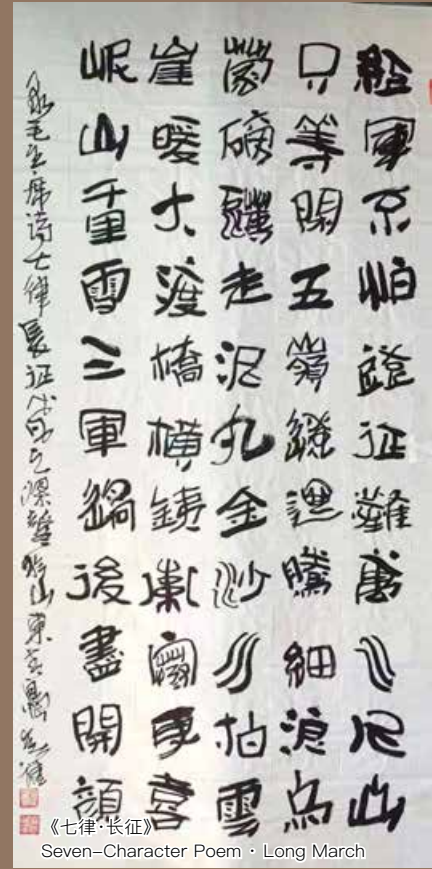 紅軍不怕遠征難萬水千山
只等閒五嶺逶迤騰細浪烏
蒙磅礴走泥丸金沙水拍雲
崖暖大渡橋橫鐵索寒更喜
岷山千里雪三軍過後盡開顏
錄毛主席詩七律長征山東
《七律·长征》
Seven-Character Poem · Long March